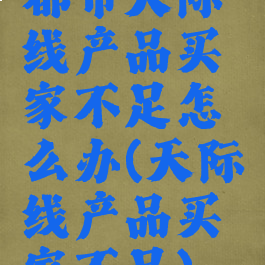 都市天际
线产品买
家不足怎
么办(天际
线产品买
家不足)